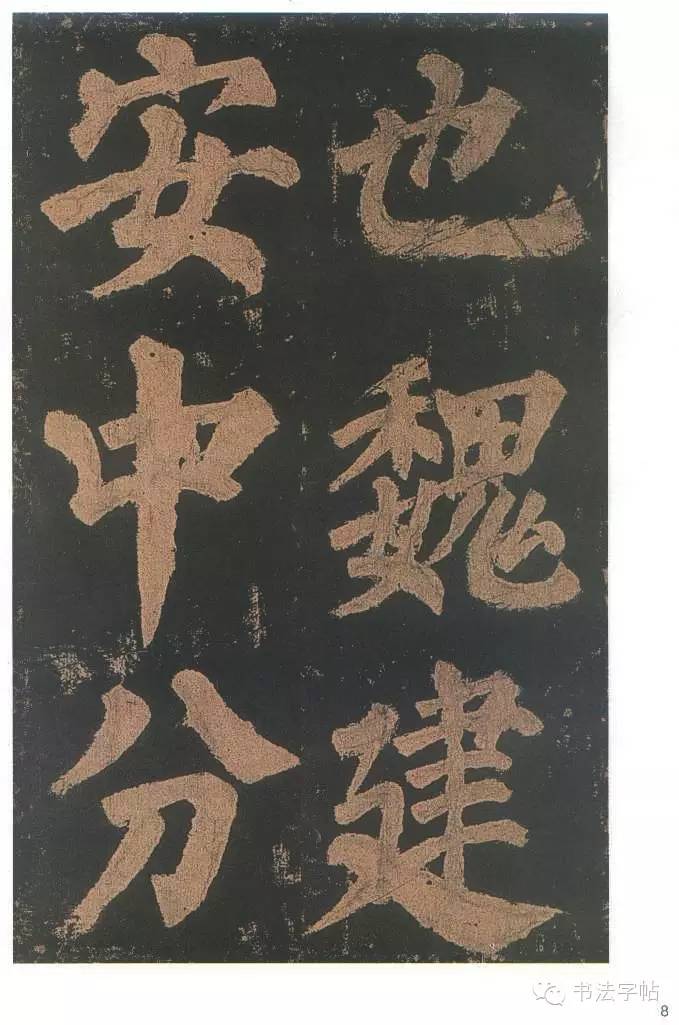 也魏建
安中分
书法字帖
8